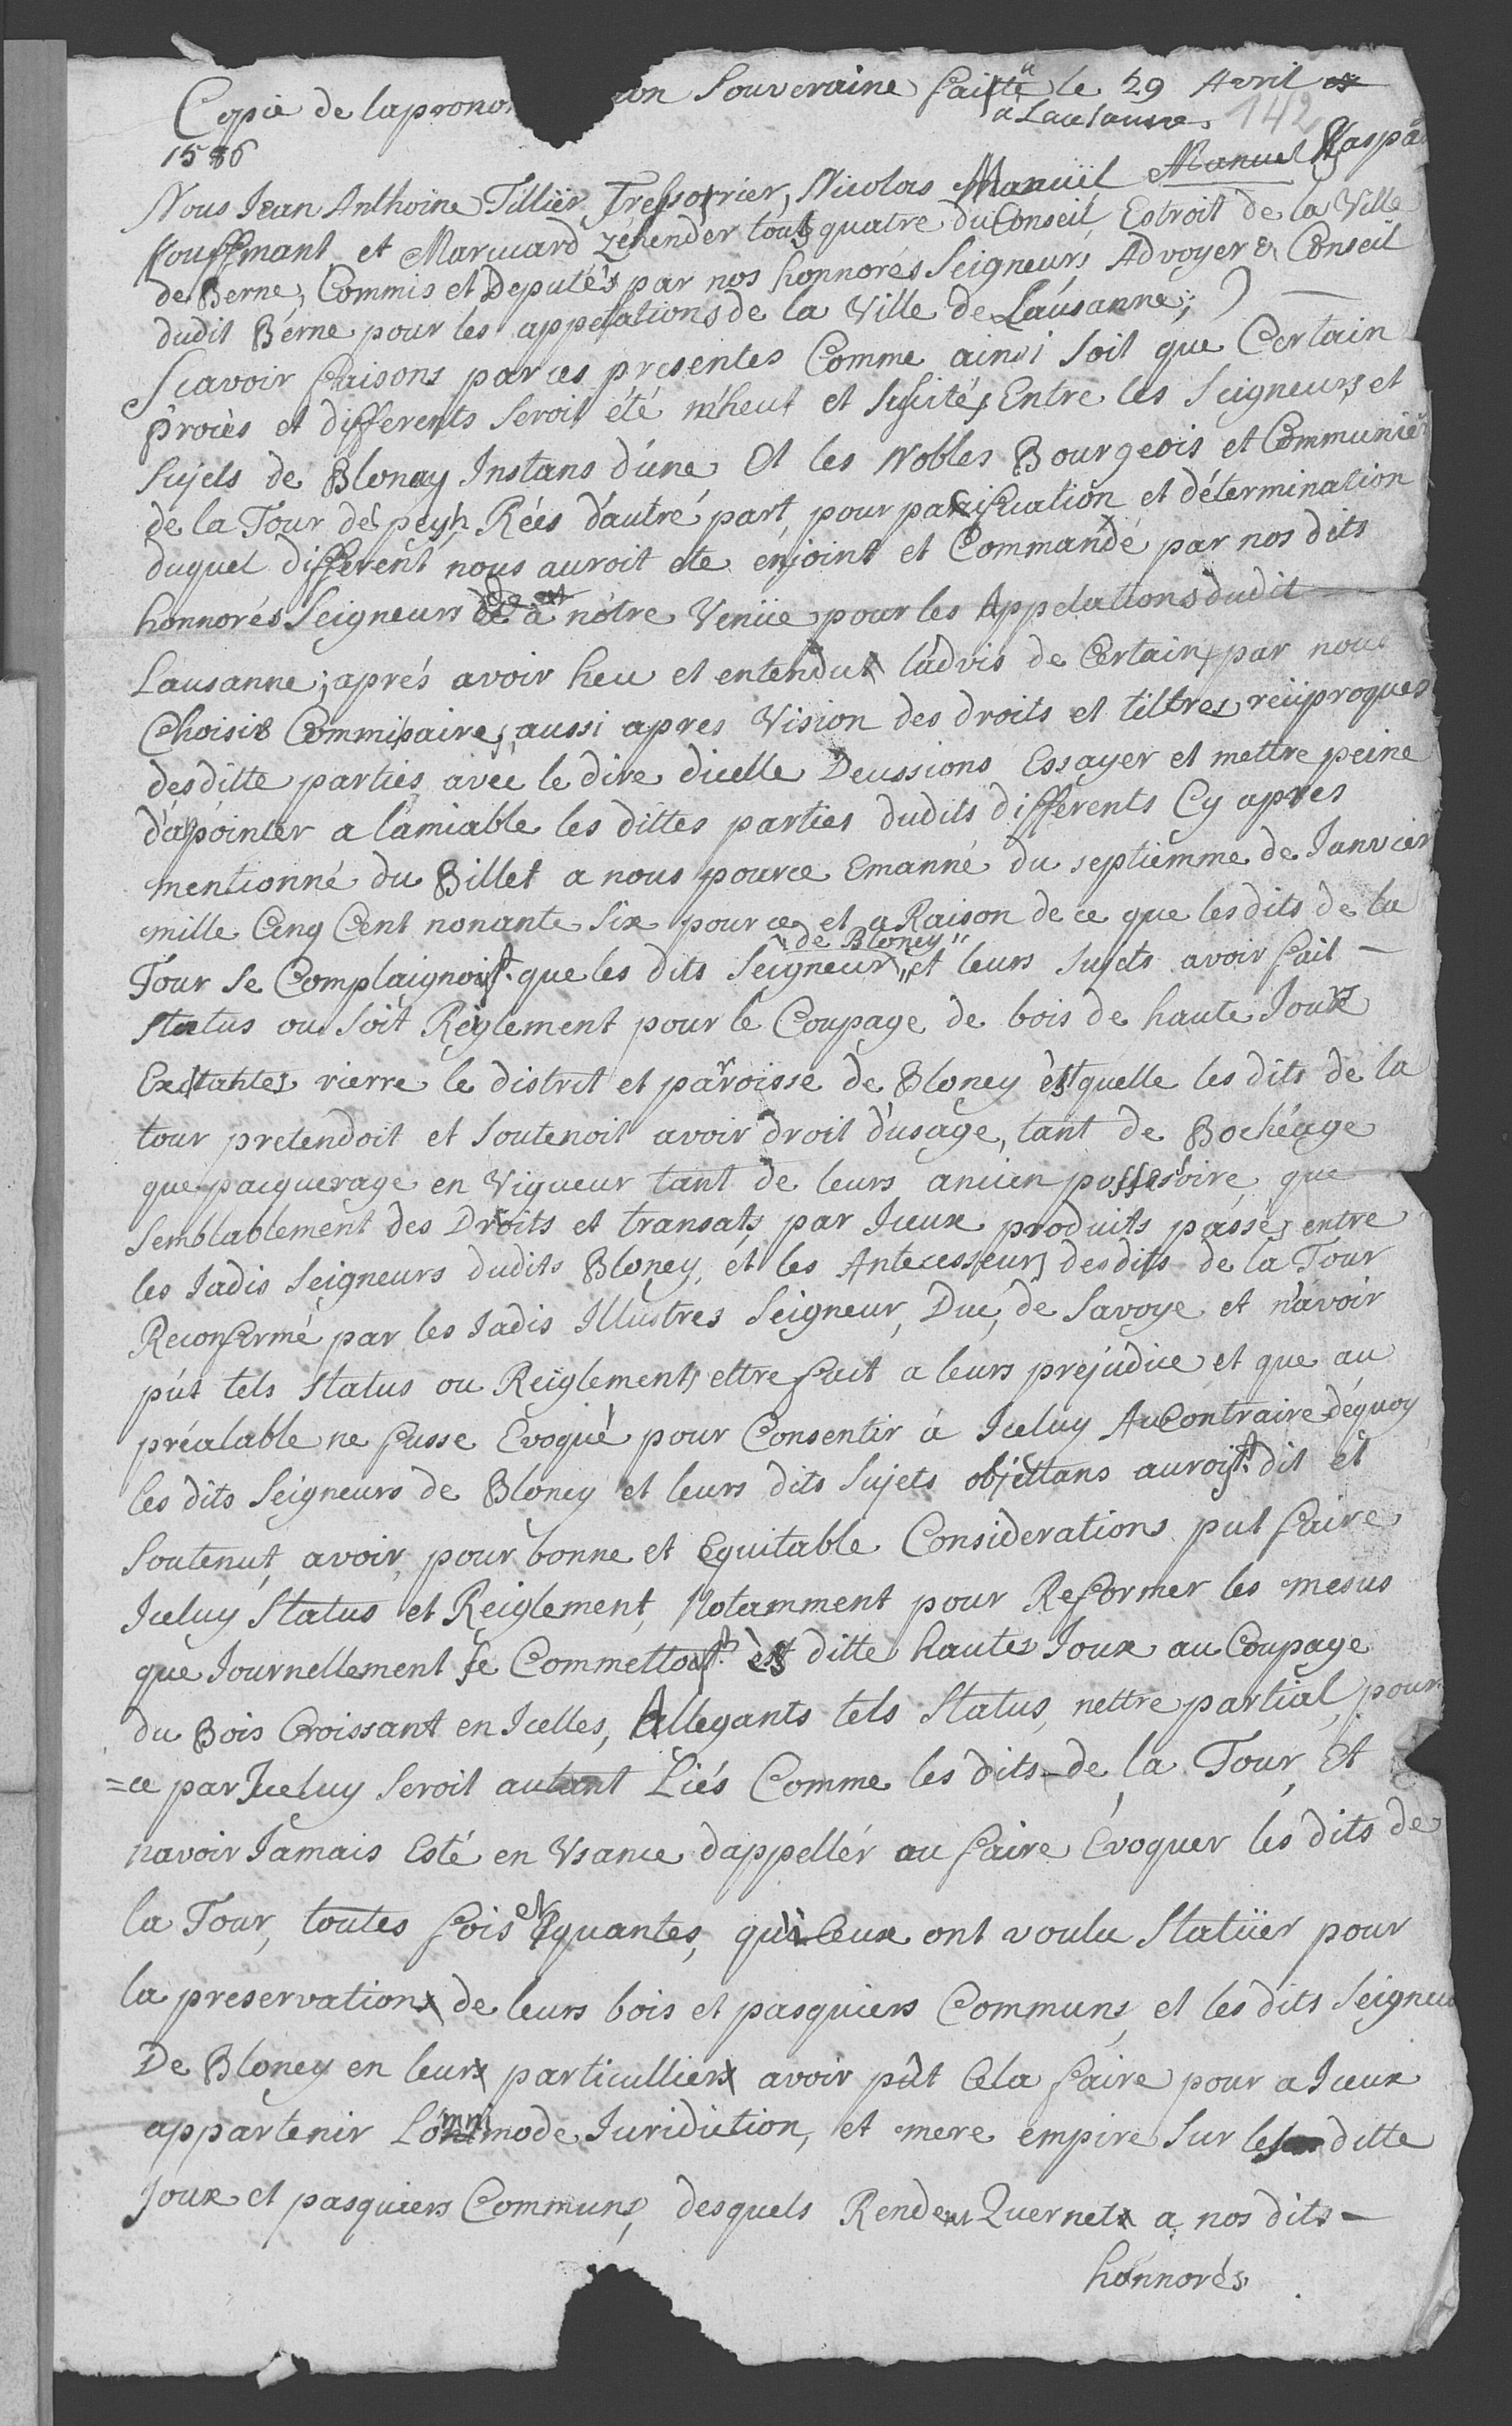 Copie de la prono on Souveraine faitte le 29 Avril
à Lausanne. 142
1586
Nous Jean Anthoine Tillier, Tressorrier, Nicolas Manuël Manuel Gaspa
Kouffmant et Marquard Zehender tous quatre du Conseil Estroit de la Ville
de Berne, Commis et Deputés par nos honnorés Seigneurs Advoyer & Conseil
dudit Berne pour les appellations de la Ville de Lausanne;
Scavoir faisons par ces presentes Comme ainsi soit que Certain
procès et differents seroit été m'heut et suscités Entre les Seigneurs et
Sujets de Blonay Instans d'une Et les Nobles Bourgeois et Communier
de la Tour de peyh Réés d'autre part, pour pacification et détermination
duquel different nous auroit ete enjoint et Commandé par nos dits
honnorés Seigneurs de a nôtre Venüe pour les Appelations dudit
Lausanne; aprés avoir heu et entendu l'advis de Certain par nous
Choisis Commissaire, aussi apres Vision des droits et tiltres reciproques
desditte parties avec le dire dicelle Deussions Essayer et mettre peine
d'apointer a l'amiable les dittes parties dudits differents Cy apres
mentionné du Billet a nous pource Emanné du septiemme de Janvier
mille Cinq Cent nonante Six pour ce et a Raison de ce que lesdits de la
Tour se Complaignoist que les dits Seigneur "de Bloney" et leurs sujets avoir fait
status ou soit Reiglement pour le Coupage de bois de haute Joux
Exstantes rierre le distrit et parroisse de Bloney ès quelle les dits de la
tour pretendoit et soutenoit avoir droit d'usage, tant de Bochéage
que pacquerage en Vigueur tant de leurs ancien possessoire que
semblablement des Droits et transats par Iceux produits passés entre
les Jadis Seigneurs dudits Bloney, et les Antecesseurs desdits de la Tour
Reconfermé par les Jadis Illustres Seigneur, Duc, de Savoye et n'avoir
pût tels status ou Reiglements ettre fait a leurs prejudice et que au
préalable ne fusse Evoqué pour Consentir à Iceluy Au Contraire déquoy
les dits Seigneurs de Bloney et leurs dits Sujets objettans auroist dit et
Soutenut, avoir pour bonne et Equitable Considerations put faire
Iceluy Status et Reiglement, Notamment pour Reformer les mesus
que Journellement se Commettoist ès ditte hautes Joux au Coupage
du Bois Croissant en Icelles, Allegants tels Status, nettre partial, pour
=ce par Iceluy seroit autant Liés Comme les dits de la Tour, Et
navoir Jamais Esté en Usance dappellér au faire Evoquer les dits de
la Tour, toutes fois et quantes, qu'iceux ont voulu Statüer pour
la preservation de leurs bois et pasquiers Communs, et les dits Seigneu
De Bloney en leur particullier avoir pût Cela faire pour a Iceux
appartenir L'omnimode Juridiction, et mere empire Sur les ditte
Joux et pasquiers Communs, desquels Rendent Quernet a nos dits
honnorés